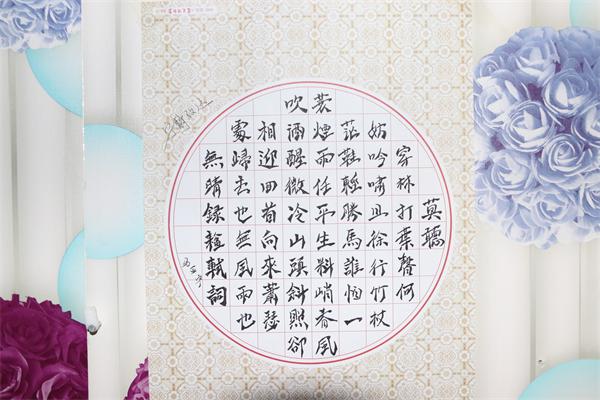 莫聽
穿林打葉聲何
妨吟嘯且徐行竹杖
芒鞋輕勝馬誰怕一
蓑煙雨任平生料峭春風
吹酒醒微冷山頭斜照卻
相迎回首向來蕭瑟
處歸去也無風雨也
無晴錄蘇軾詞